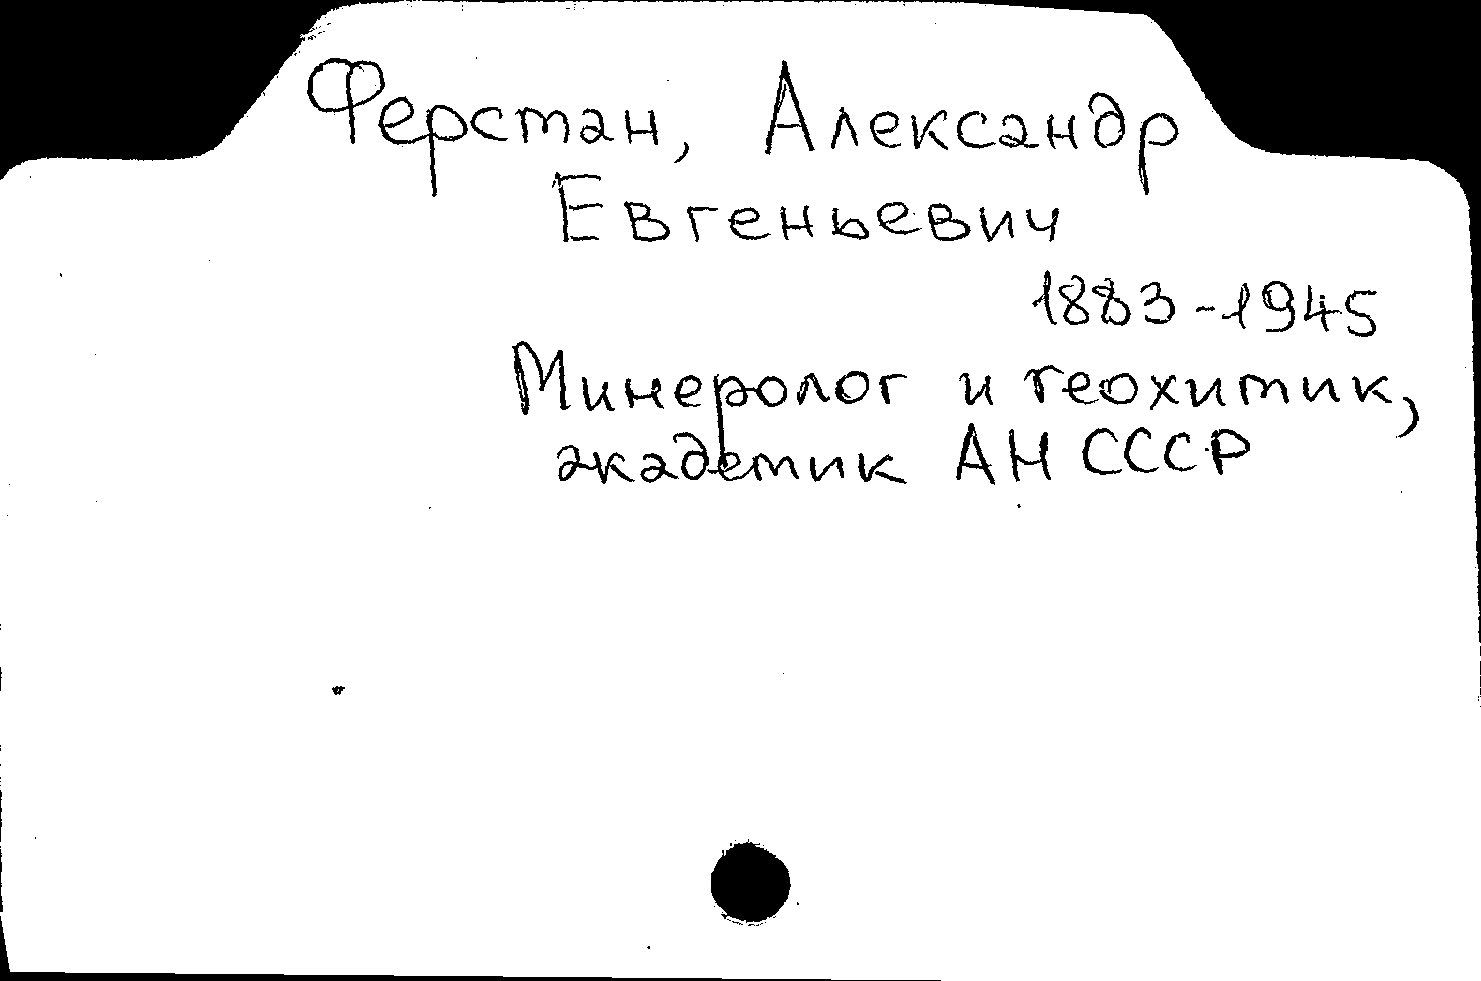 Ферстан, Александр
Евгеньевич
1883-1945
Минеролог и геохимик,
академик АН СССР